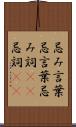 忌み言葉
忌言葉忌
み詞
忌詞